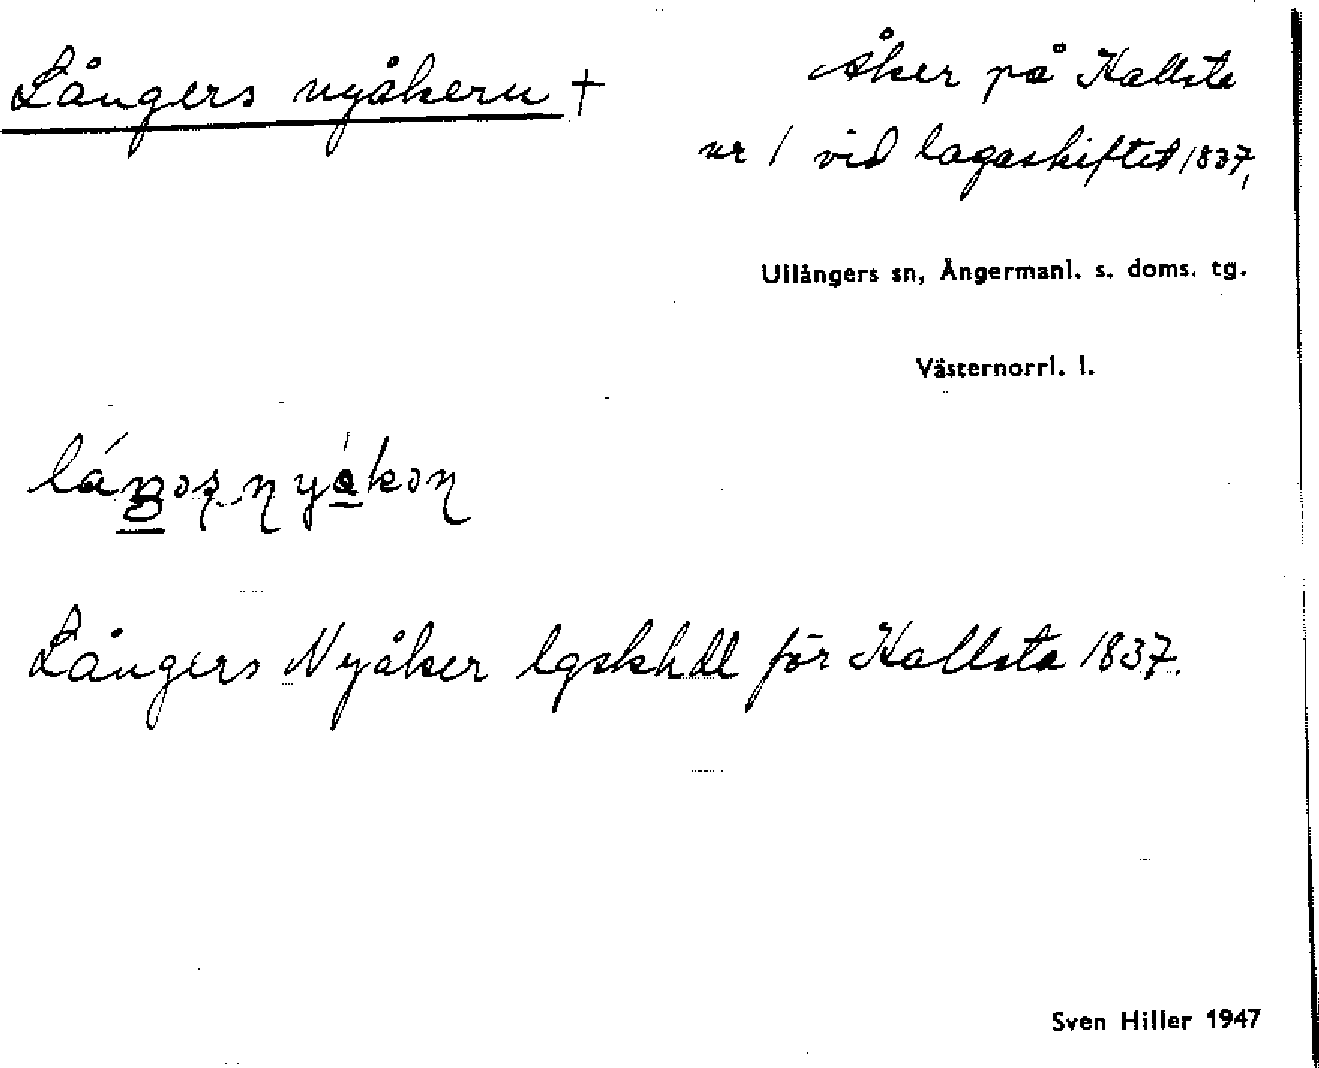 Långers nyåkern †
Åker på Kallsta
nr 1 vid lagaskiftet 1837,
Ullångers sn, Ångermanl. s. doms. tg.
Västernorrl. l.
Långers Nyåker lgskhdl för Kallsta 1837.
Sven Hiller 1947